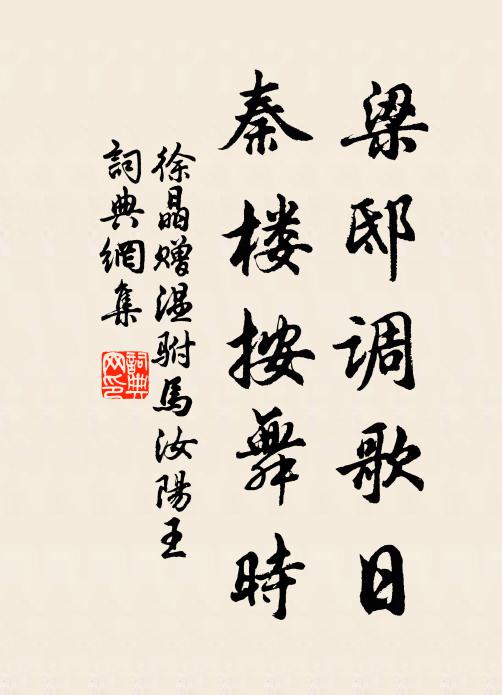 梁邸调歌日
秦楼按舞時
徐晶赠温駙馬汝陽王
詞典網集
詞典網印